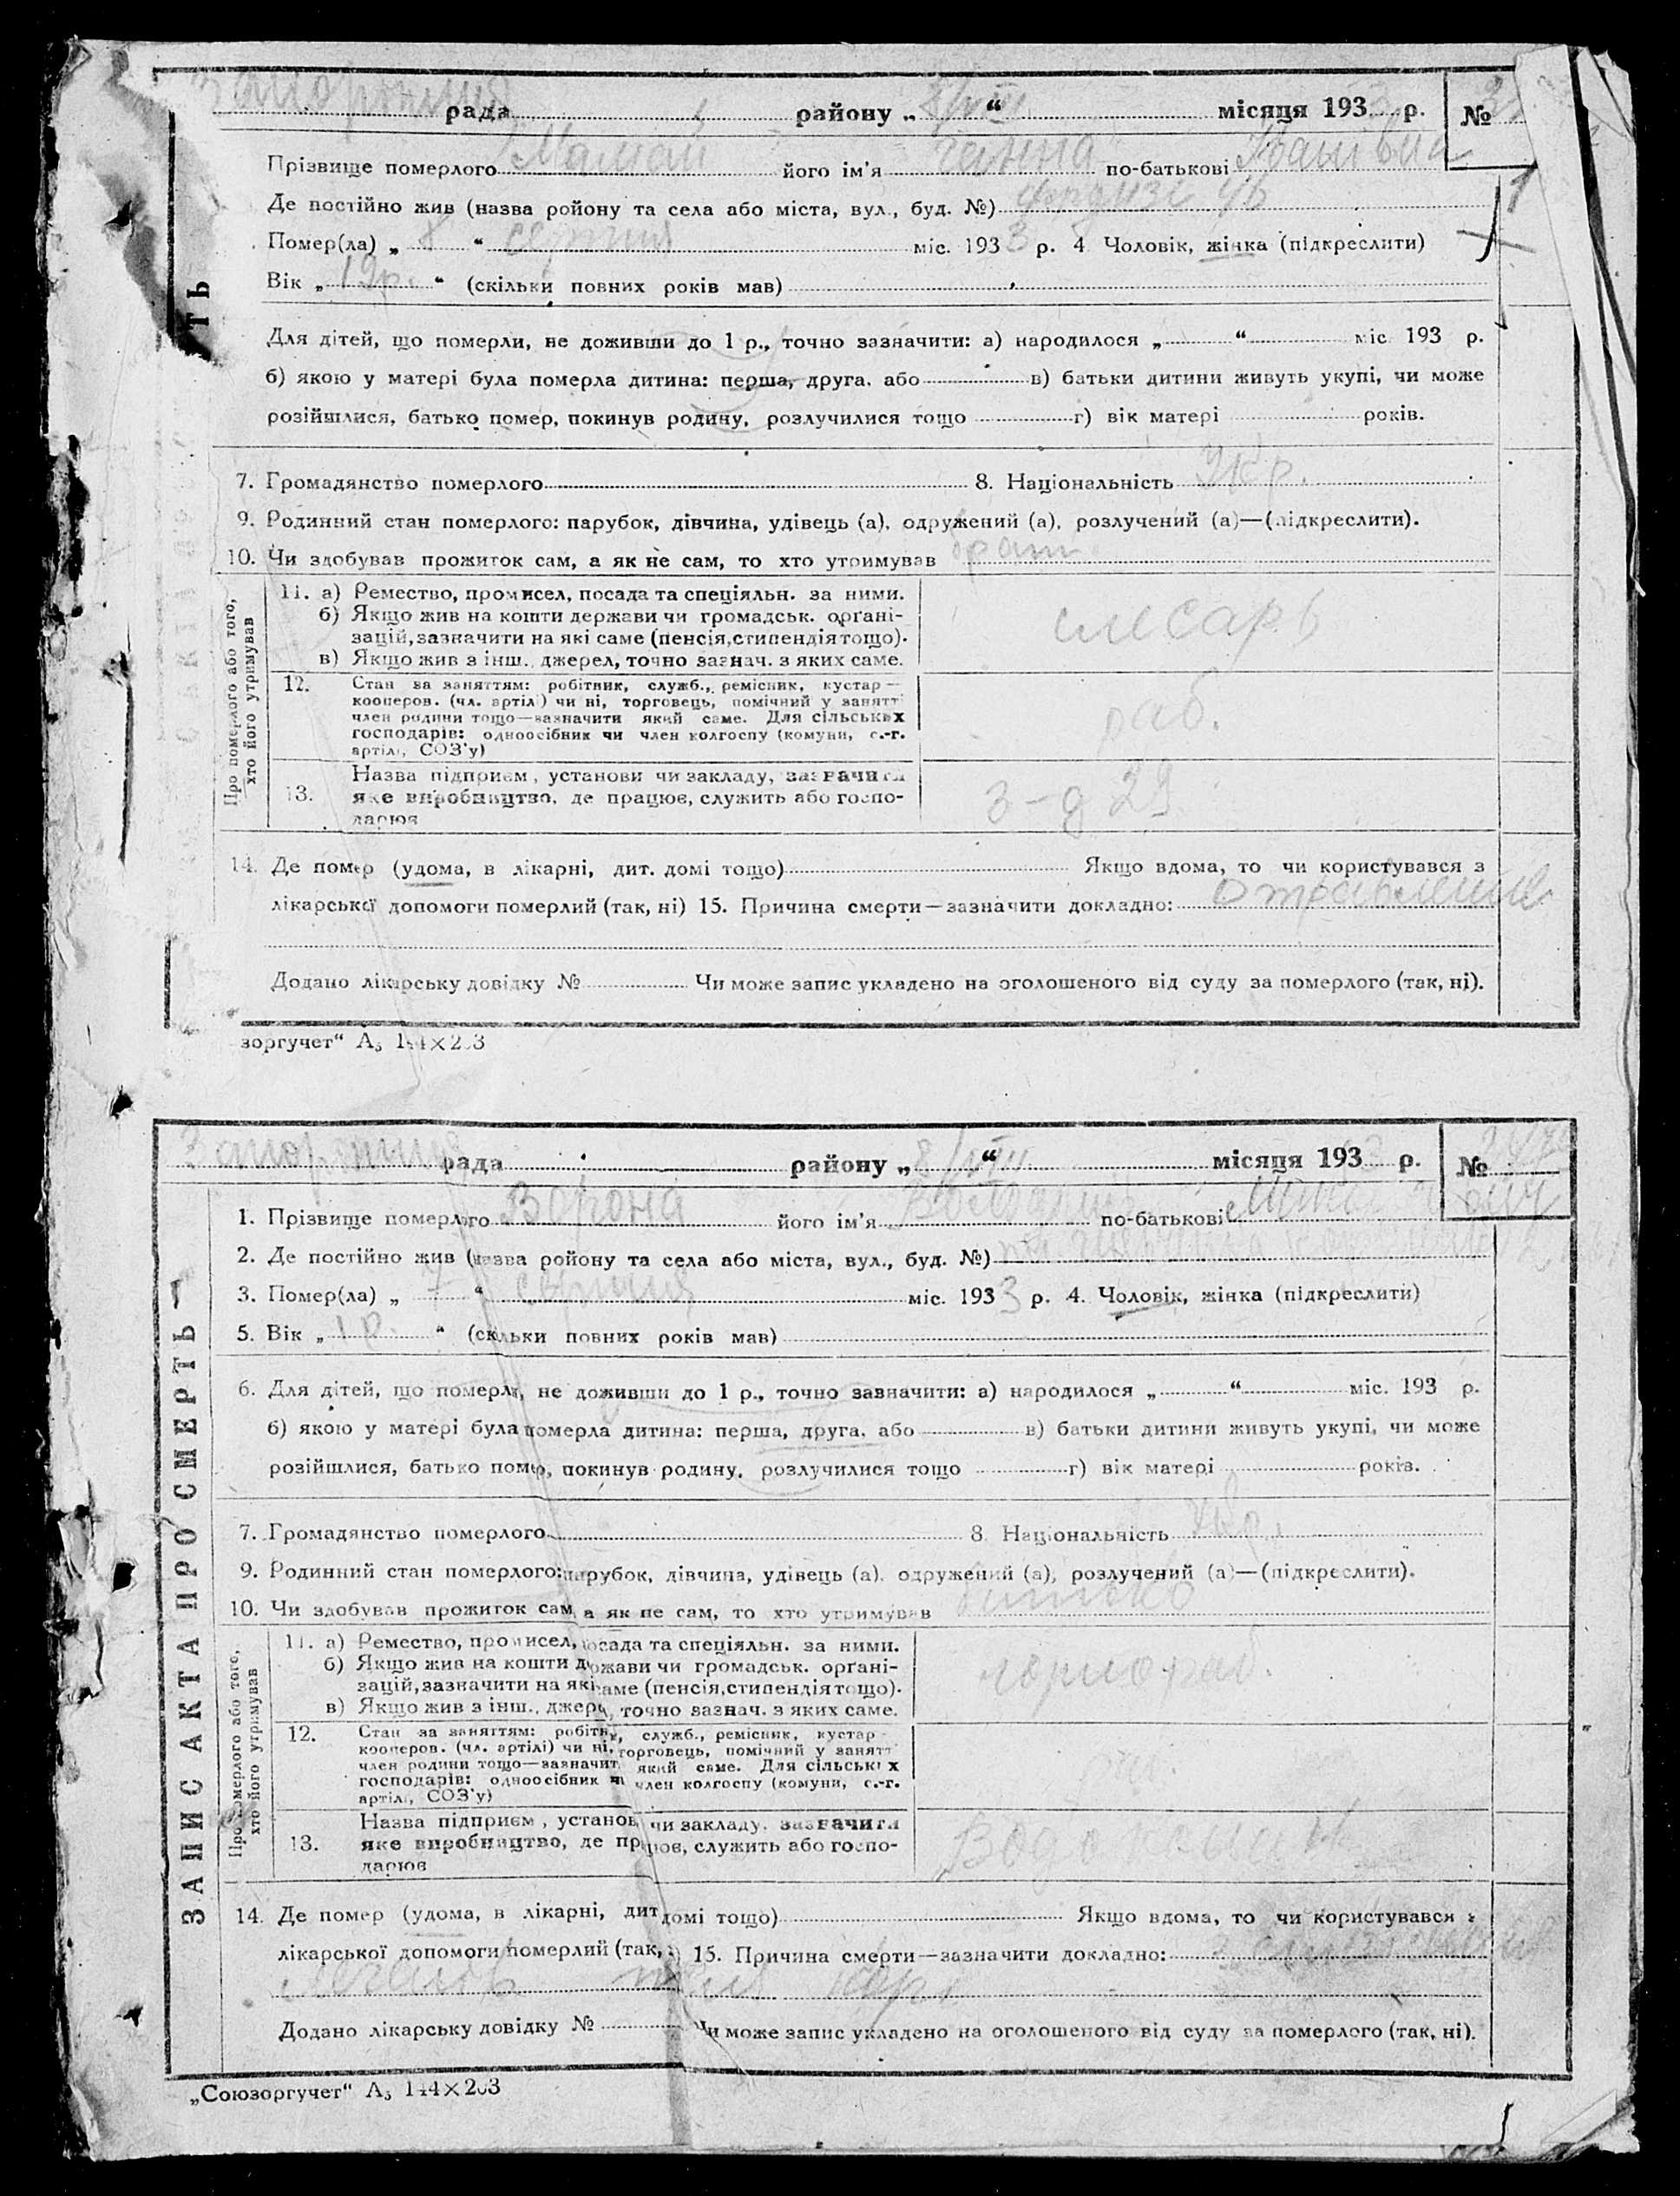 рада району „8/VIII“ місяця 193 р. №
Прізвище померлого Мамай його ім’я Ганна по-батькові Іванівна
Де постійно жив (назва ройону та села або міста, вул., буд. №)
Помер(ла) „8“ серпня міс. 1933 р. 4 Чоловік, жінка (підкреслити)
Вік „19р.“ (скільки повних років мав)
Для дітей, що померли, не доживши до 1 р., точно зазначити: а) народилося „ “ міс. 193 р.
б) якою у матері була померла дитина: перша, друга, або в) батьки дитини живуть укупі, чи може
розійшлися, батько помер, покинув родину, розлучилися тощо г) вік матері років.
7. Громадянство померлого 8. Національність Укр.
9. Родинний стан померлого: парубок, дівчина, удівець (а), одружений (а), розлучений (а)—(підкреслити).
10. Чи здобував прожиток сам, а як не сам, то хто утримував брат
Про померлого або того, хто його утримував
11. а) Ремество, промисел, посада та спеціяльн. за ними.
б) Якщо жив на кошти держави чи громадськ. орґані-
зацій, зазначити на які саме (пенсія, стипендія тощо).
в) Якщо жив з інш. джерел, точно зазнач. з яких саме.
слесарь
12. Стан за заняттям: робітник, служб., ремісник, кустар—
кооперов. (чл. артілі) чи ні, торговець, помічний у занятт
член родини тощо—зазначити який саме. Для сільських
господарів: одноосібник чи член колгоспу (комуни, с.-г.
артілі, СОЗ’у)
раб.
13. Назва підприєм, установи чи закладу, зазначити
яке виробництво, де працює, служить або госпо-
дарює
з-д 29
14. Де помер (удома, в лікарні, дит. домі тощо) Якщо вдома, то чи користувався з
лікарської допомоги померлий (так, ні) 15. Причина смерти—зазначити докладно: отравление
Додано лікарську довідку № Чи може запис укладено на оголошеного від суду за померлого (так, ні).
зоргучет“ А₅ 144×203
рада району „8/VIII“ місяця 193 р. №
ЗАПИС АКТА ПРО СМЕРТЬ
1. Прізвище померлого Ворона його ім’я по-батькові
2. Де постійно жив (назва ройону та села або міста, вул., буд. №)
3. Помер(ла) „7“ серпня міс. 1933 р. 4. Чоловік, жінка (підкреслити)
5. Вік „1 р.“ (скільки повних років мав)
6. Для дітей, що померли, не доживши до 1 р., точно зазначити: а) народилося „ “ міс. 193 р.
б) якою у матері була померла дитина: перша, друга, або в) батьки дитини живуть укупі, чи може
розійшлися, батько помер, покинув родину, розлучилися тощо г) вік матері років.
7. Громадянство померлого 8. Національність Укр.
9. Родинний стан померлого: парубок, дівчина, удівець (а), одружений (а), розлучений (а)—(підкреслити).
10. Чи здобував прожиток сам, а як не сам, то хто утримував батько
Про померлого або того, хто його утримував
11. а) Ремество, промисел, посада та спеціяльн. за ними.
б) Якщо жив на кошти держави чи громадськ. орґані-
зацій, зазначити на які саме (пенсія, стипендія тощо).
в) Якщо жив з інш. джерел, точно зазнач. з яких саме.
чорнораб.
12. Стан за заняттям: робітн, служб., ремісник, кустар—
кооперов. (чл. артілі) чи ні, торговець, помічний у занятт
член родини тощо—зазначит який саме. Для сільських
господарів: одноосібник чи член колгоспу (комуни, с.-г.
артілі, СОЗ’у)
13. Назва підприєм, установ чи закладу, зазначити
яке виробництво, де працює, служить або госпо-
дарює
14. Де помер (удома, в лікарні, дит домі тощо) Якщо вдома, то чи користувався з
лікарської допомоги померлий (так, 15. Причина смерти—зазначити докладно:
Додано лікарську довідку № Чи може запис укладено на оголошеного від суду за померлого (так, ні).
„Союзоргучет“ А₅ 144×203